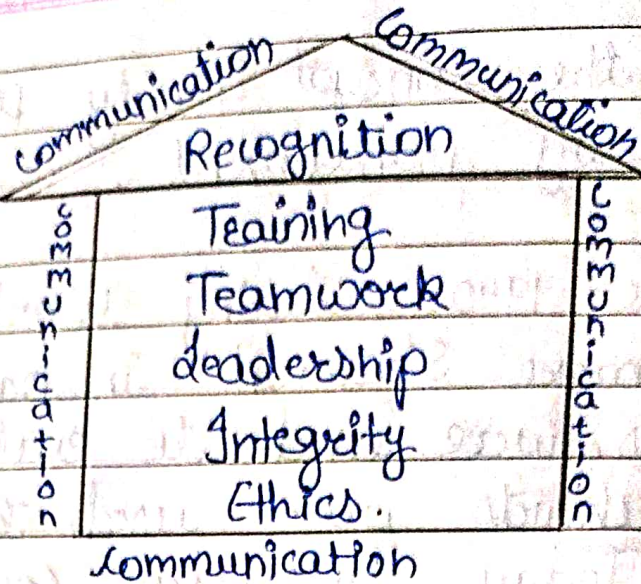 Communication
Communication
Recognition
Communication
Training
Teamwork
Leadership
Integrity
Ethics.
Communication
Communication